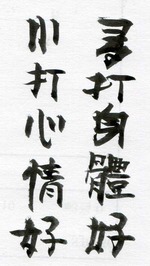 打身體好
小打心情好